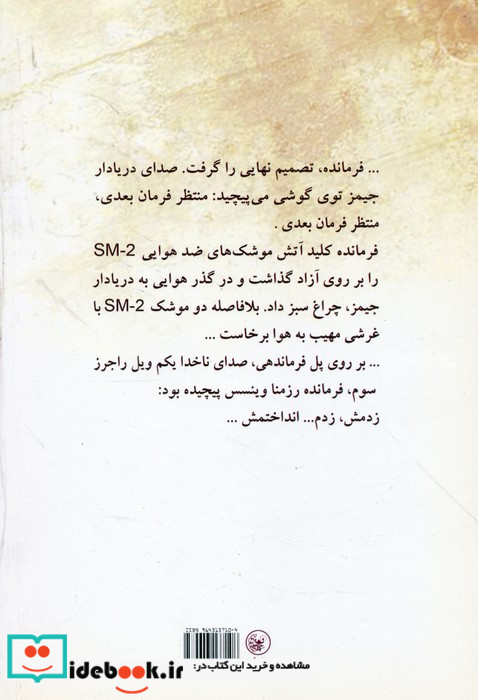 ... فرمانده، تصمیم نهایی را گرفت. صدای دریادار
جیمز توی گوشی می‌پیچید: منتظر فرمان بعدی،
منتظر فرمان بعدی .
فرمانده کلید آتش موشک‌های ضد هوایی SM-2
را بر روی آزاد گذاشت و در گذر هوایی به دریادار
جیمز، چراغ سبز داد. بلافاصله دو موشک SM-2 با
غرشی مهیب به هوا برخاست ...
... بر روی پل فرماندهی، صدای ناخدا یکم ویل راجرز
سوم، فرمانده رزمنا وینسس پیچیده بود:
زدمش، زدم... انداختمش ...
ISBN 964313710-9
مشاهده و خرید این کتاب در:
idebook.ir